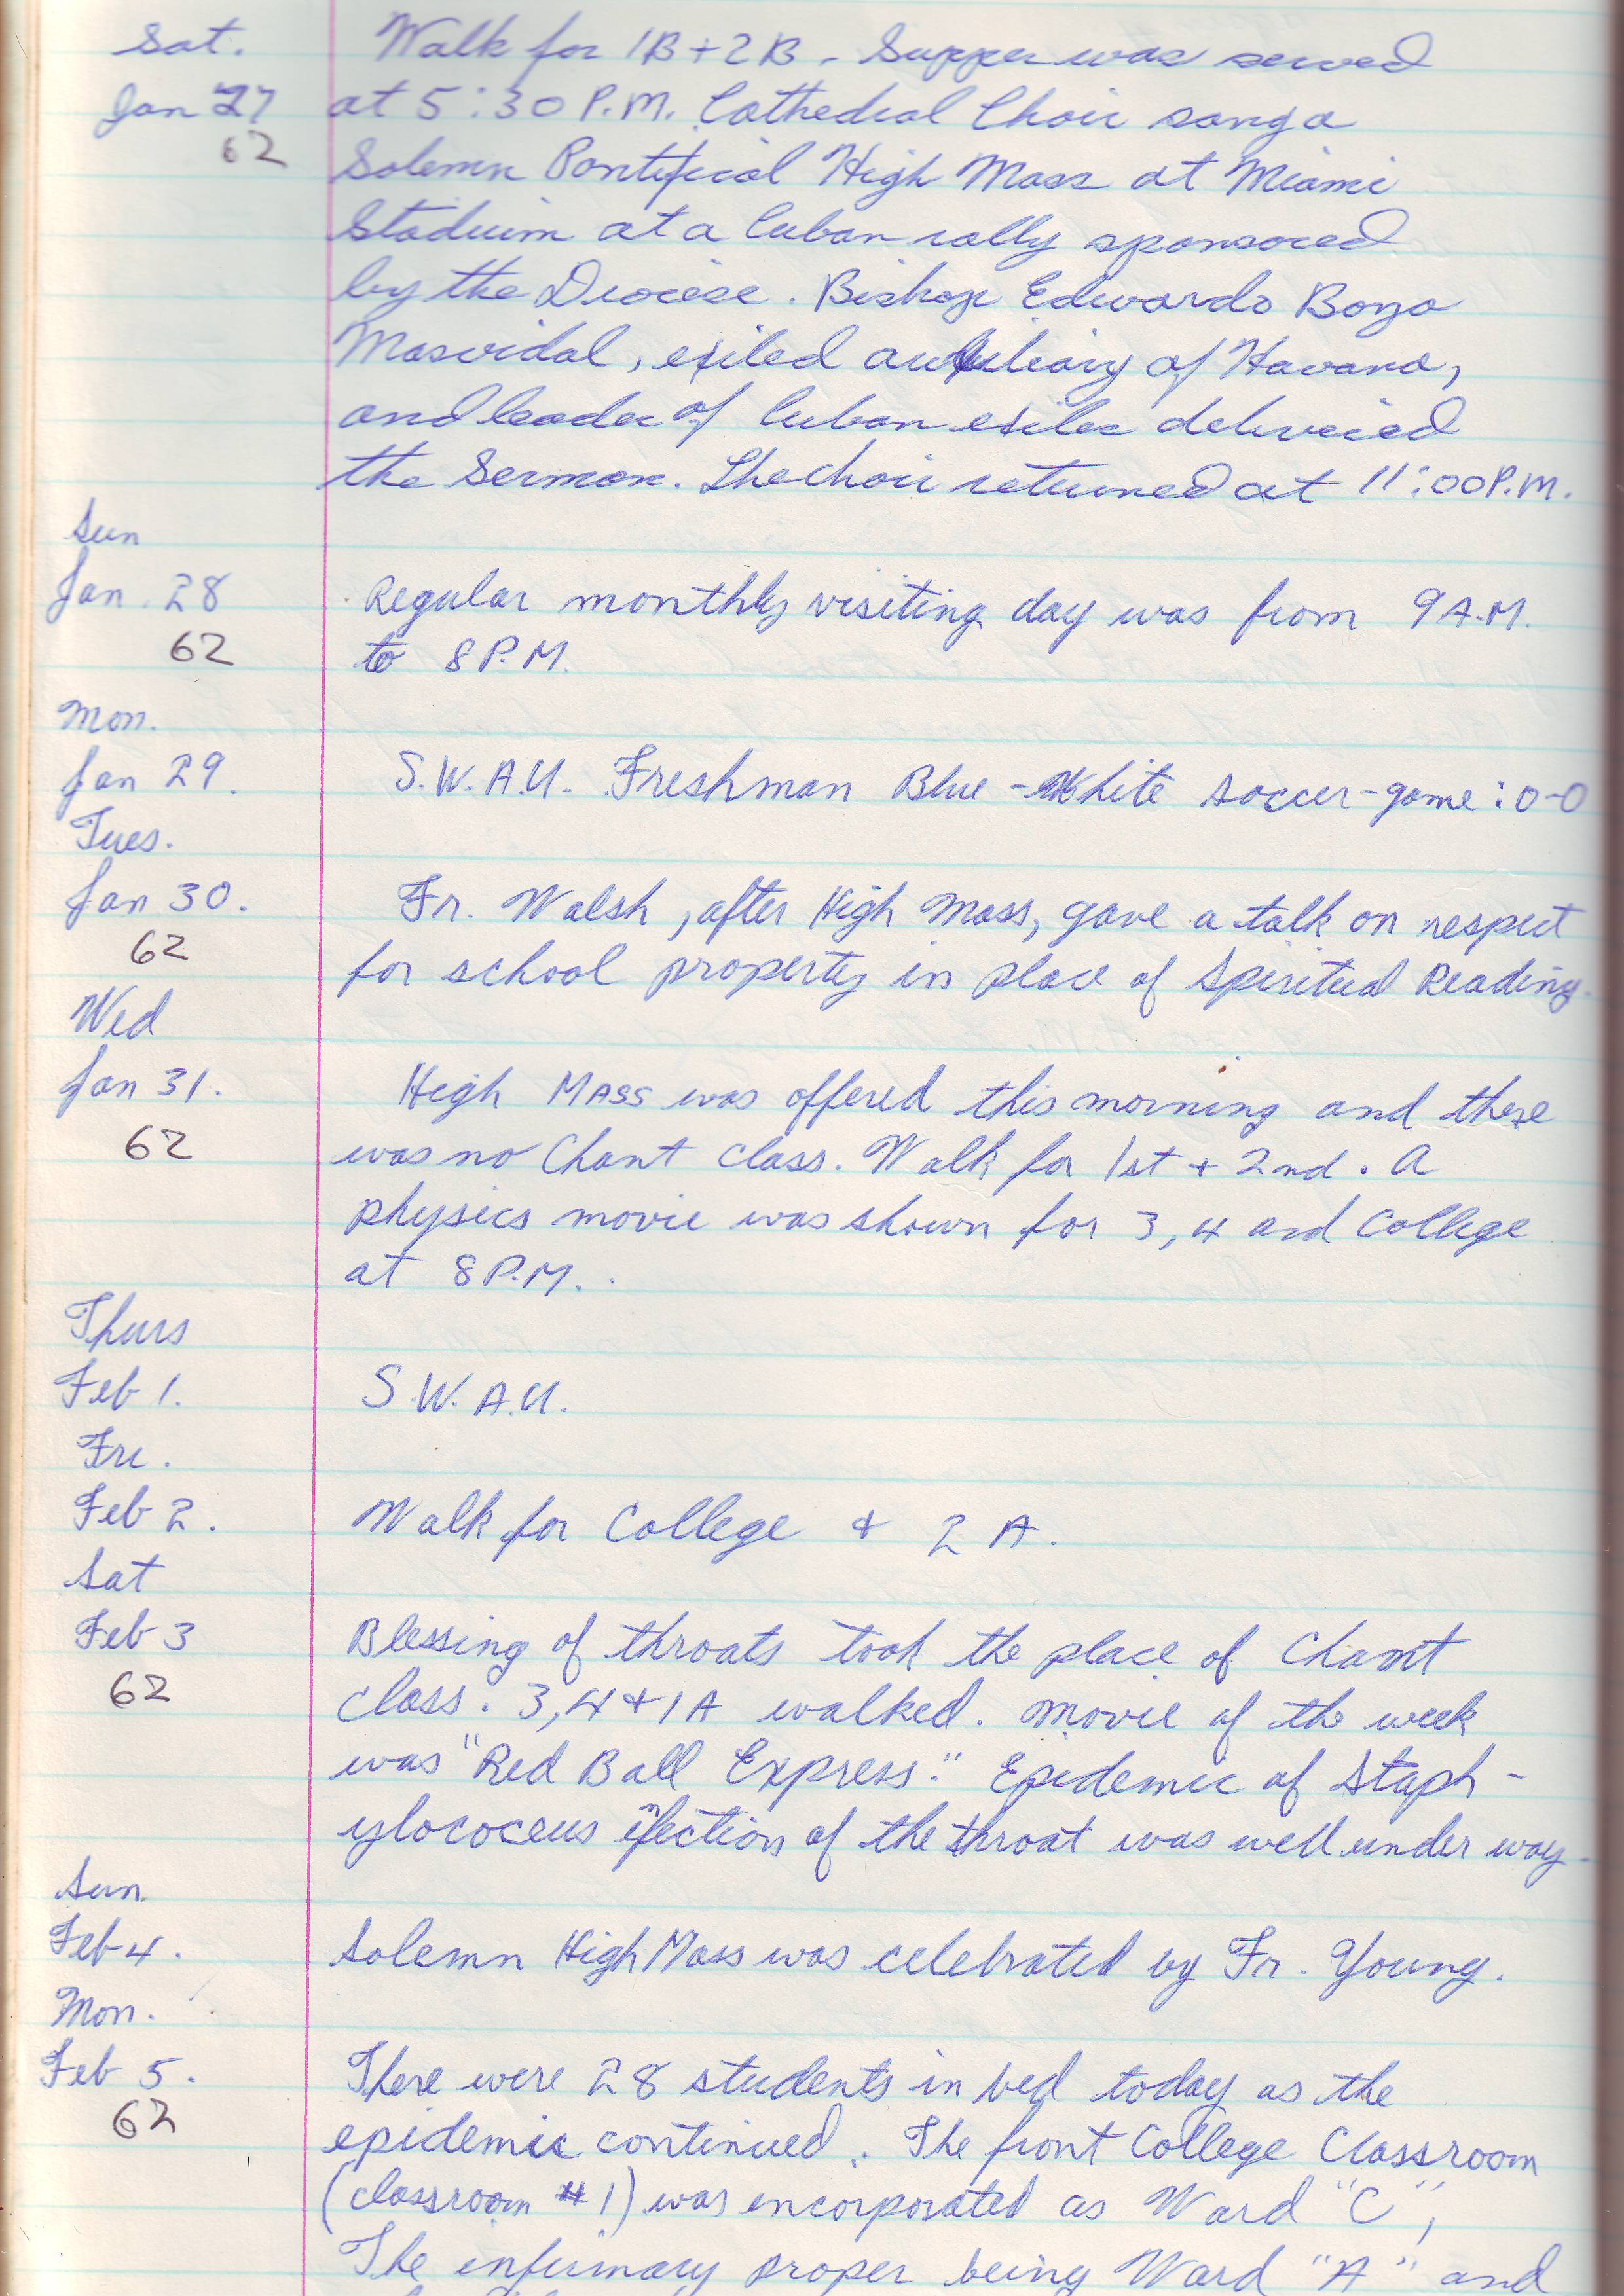 Sat. Walk for 1B + 2B. Supper was served
Jan 27 at 5:30 P.M. Cathedral Choir sang a
62 Solemn Pontifical High Mass at Miami
Stadium at a Cuban rally sponsored
by the Diocese. Bishop Edwardo Boza
Masvidal, exiled auxiliary of Havana,
and leader of Cuban exiles delivered
the Sermon. The choir returned at 11:00 P.M.
Sun
Jan. 28 Regular monthly visiting day was from 9 A.M.
62 to 8 P.M.
Mon.
Jan 29. S.W.A.U. Freshman Blue - White soccer-game: 0-0
Tues.
Jan 30. Fr. Walsh, after High Mass, gave a talk on respect
62 for school property in place of Spiritual Reading.
Wed
Jan 31. High Mass was offered this morning and there
62 was no Chant class. Walk for 1st + 2nd. A
physics movie was shown for 3, 4 and College
at 8 P.M.
Thurs
Feb 1. S.W.A.U.
Fri.
Feb 2. Walk for College + 2 A.
Sat
Feb 3 Blessing of throats took the place of Chant
62 class. 3, 4 + 1 A walked. Movie of the week
was "Red Ball Express." Epidemic of Staph-
ylococcus infection of the throat was well under way.
Sun.
Feb 4. Solemn High Mass was celebrated by Fr. Young.
Mon.
Feb 5. There were 28 students in bed today as the
62 epidemic continued. The front College Classroom
(classroom #1) was incorporated as Ward "C",
The infirmary proper being Ward "A" and